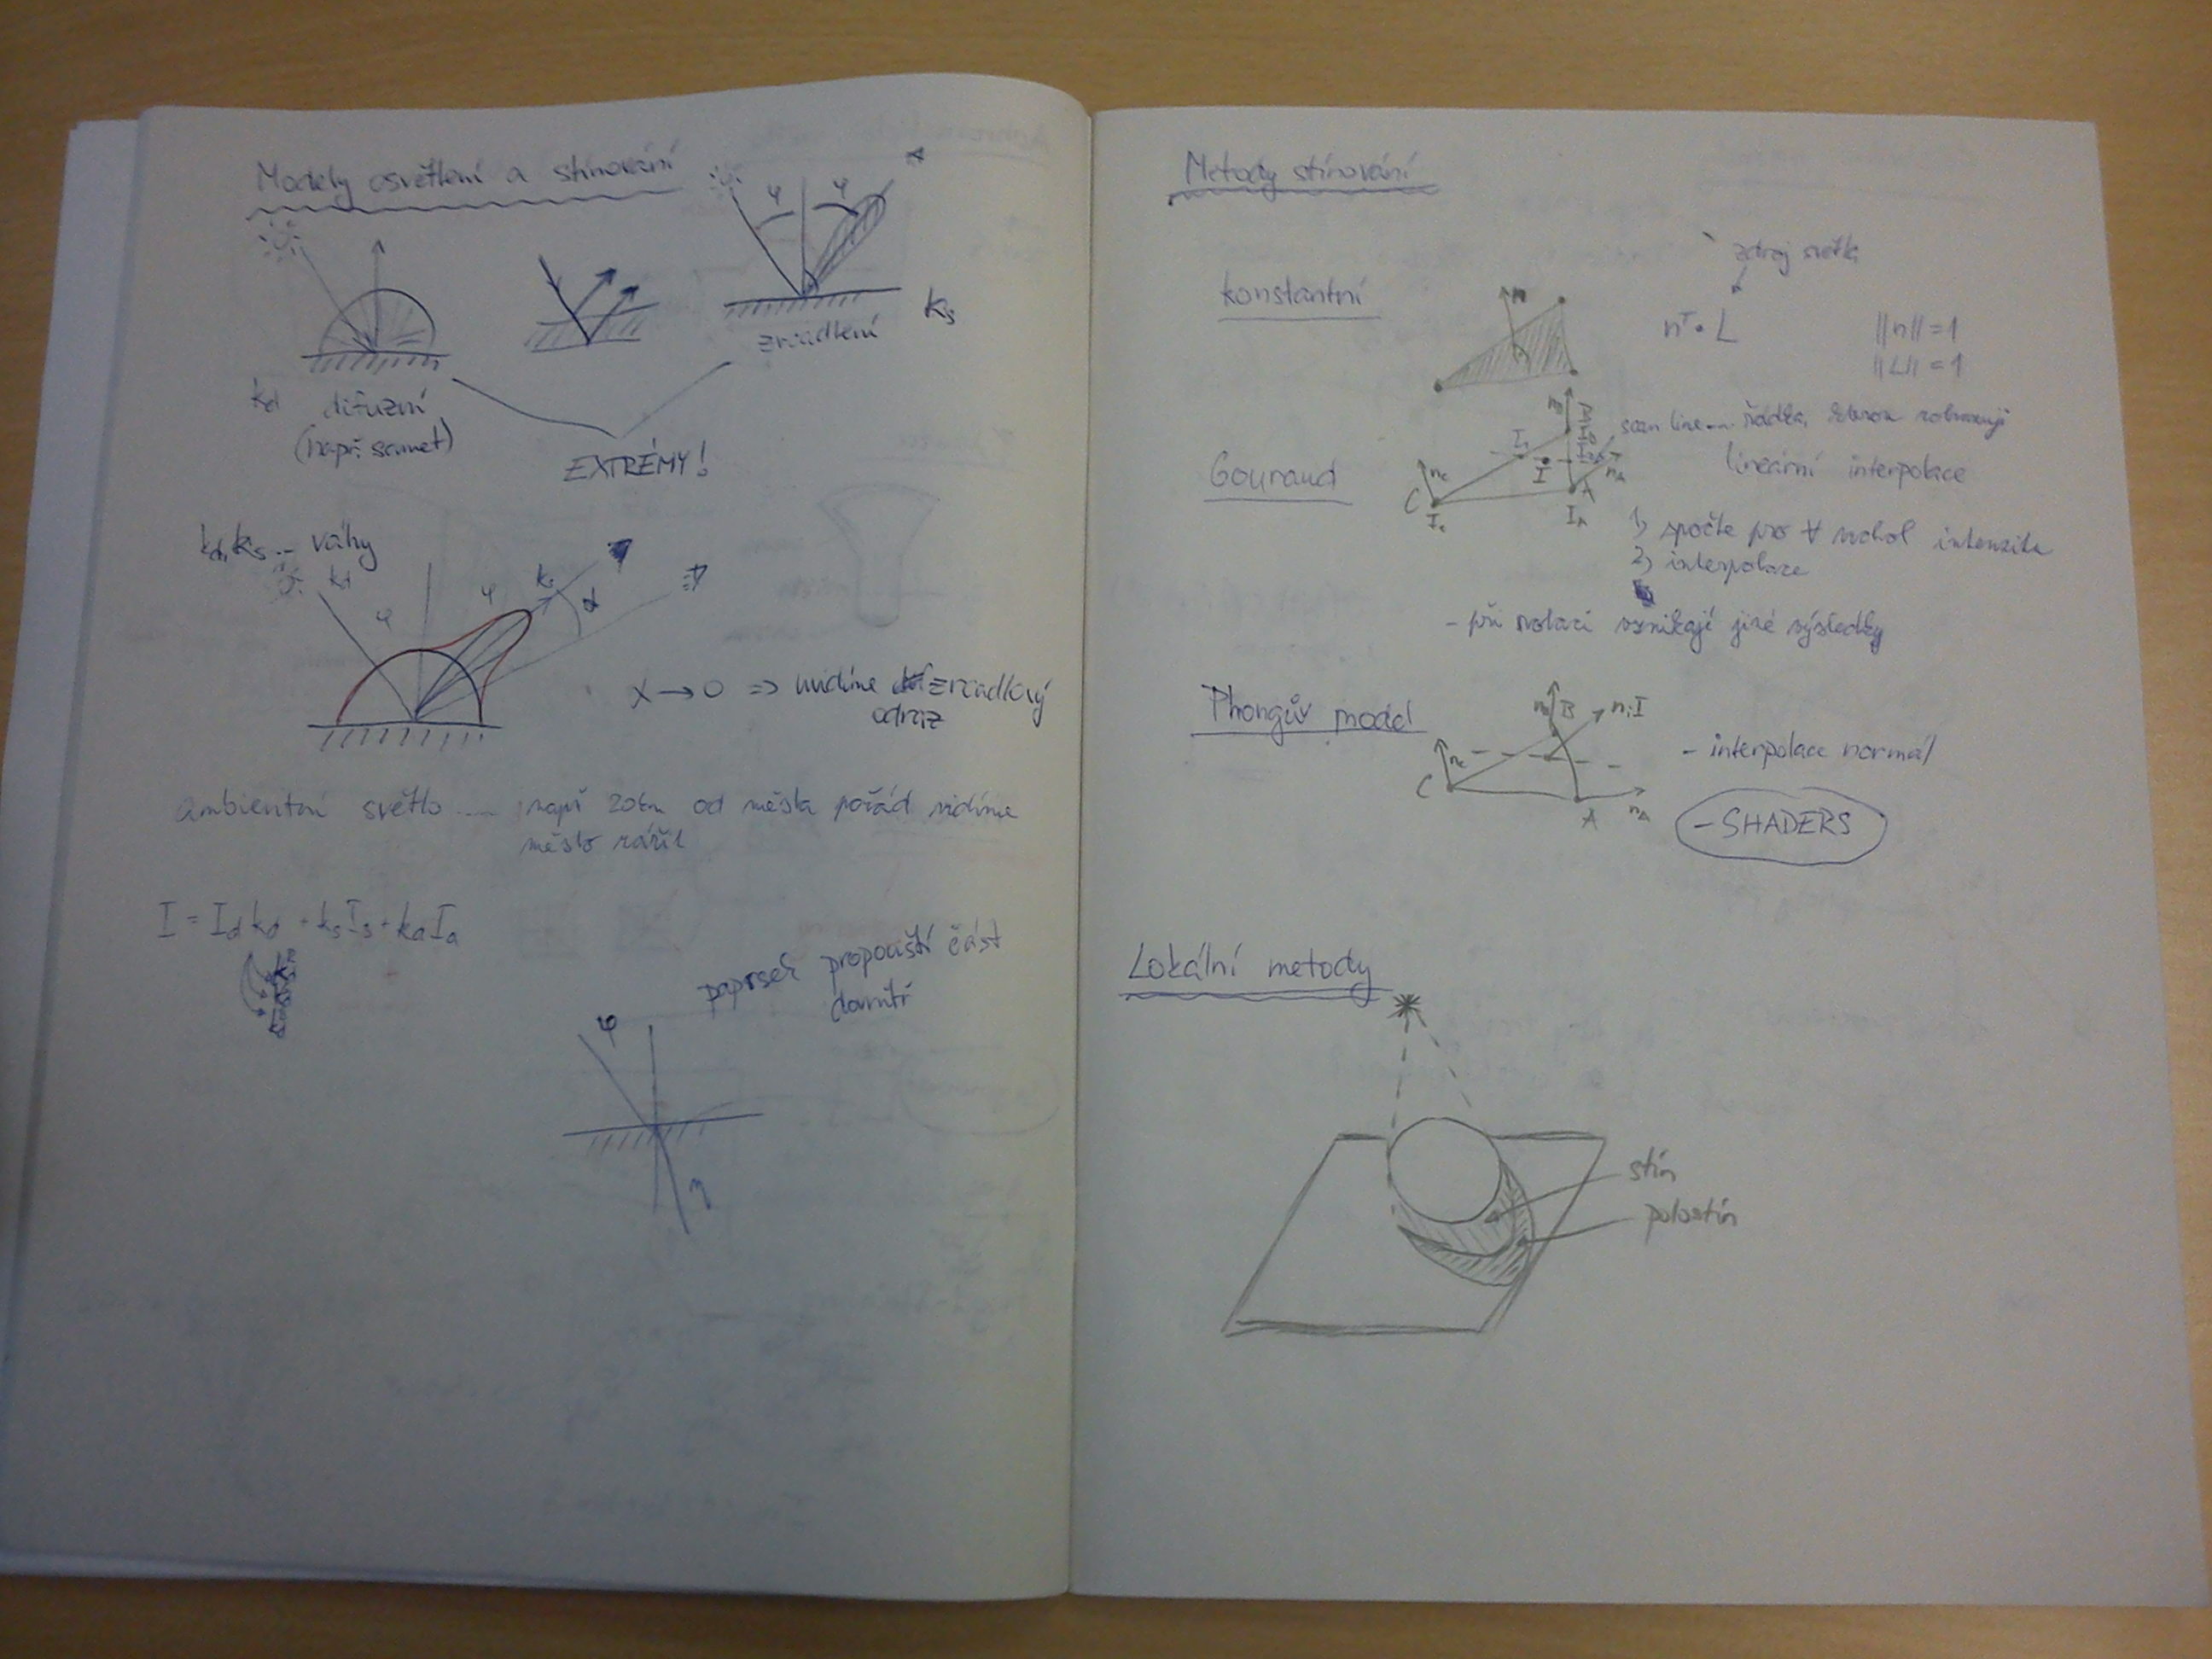 Modely osvětlení a stínování
φ φ
zrcadlení
ks
kd difuzní
(např. samet)
EXTRÉMY!
kd, ks .. váhy
kd
φ φ ks α
α → 0 => vidíme zrcadlový
odraz
ambientní světlo .... např 20km od města pořád vidíme
město zářit
I = Id kd + ks Is + ka Ia
paprsek propouští část
dovnitř
φ
η
Metody stínování
zdroj světla
konstantní
n
nᵀ • L
||n|| = 1
||L|| = 1
scan line .... řádka, kterou zobrazuji
lineární interpolace
Gouraud
nB
I1
I
nC
nA
C
A
Ic
IA
1) spočte pro ∀ vrchol intenzitu
2) interpolace
- při rotaci vznikají jiné výsledky
Phongův model
nB B n, I
nC
C
A
nA
- interpolace normál
- SHADERS
Lokální metody
stín
polostín